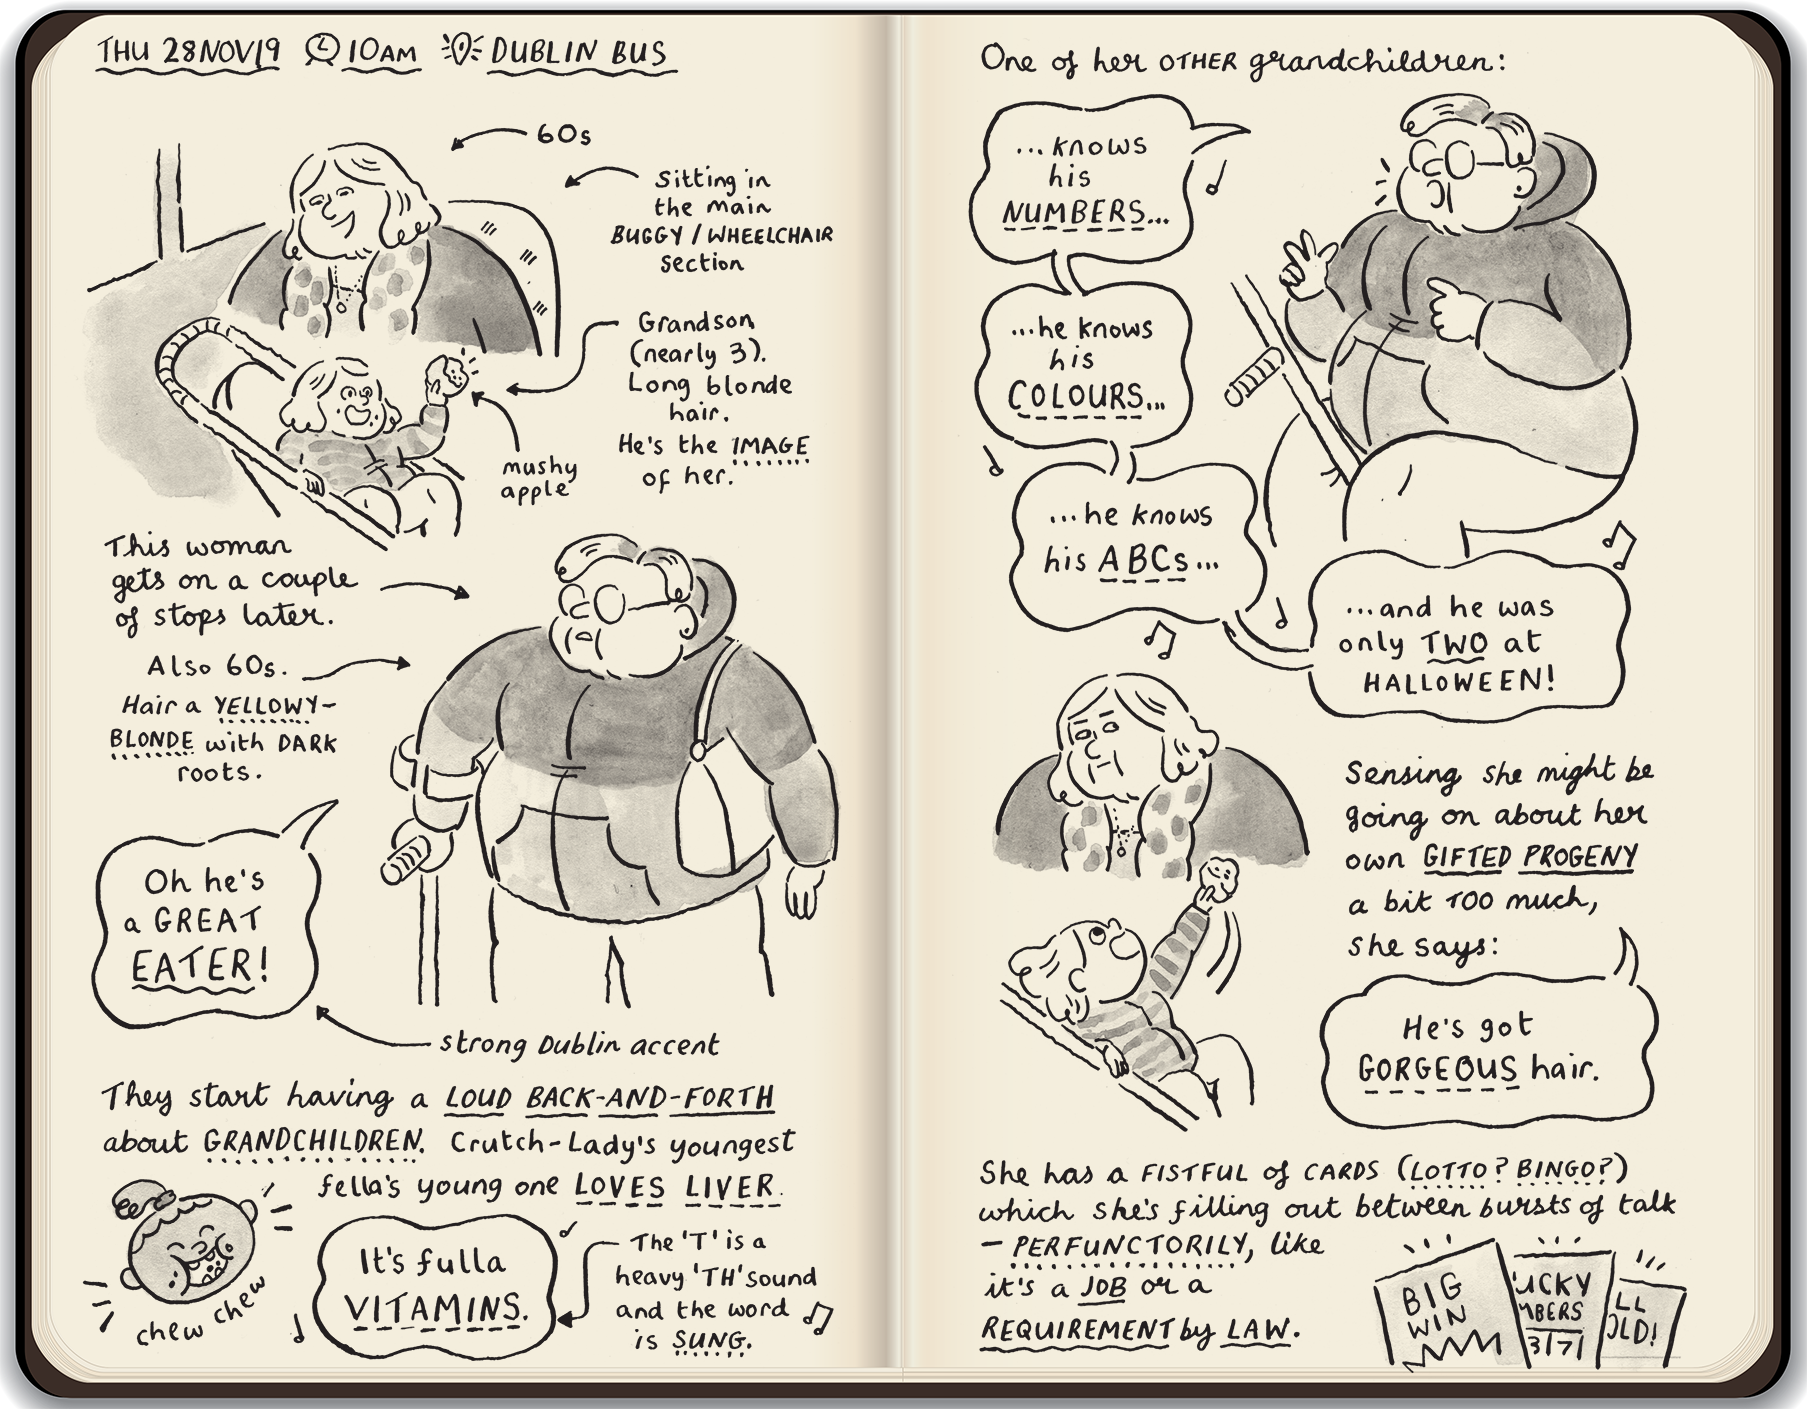 THU 28NOV19 10AM DUBLIN BUS
60s
Sitting in
the main
BUGGY / WHEELCHAIR
section
Grandson
(nearly 3).
Long blonde
hair.
He's the IMAGE
of her.
mushy
apple
This woman
gets on a couple
of stops later.
Also 60s.
Hair a YELLOWY-
BLONDE with DARK
roots.
Oh he's
a GREAT
EATER!
strong Dublin accent
They start having a LOUD BACK-AND-FORTH
about GRANDCHILDREN. Crutch-Lady's youngest
fella's young one LOVES LIVER.
chew chew
It's fulla
VITAMINS.
The 'T' is a
heavy 'TH' sound
and the word
is SUNG.
One of her OTHER grandchildren:
...knows
his
NUMBERS...
...he knows
his
COLOURS...
...he knows
his ABCs...
...and he was
only TWO at
HALLOWEEN!
Sensing she might be
going on about her
own GIFTED PROGENY
a bit TOO much,
she says:
He's got
GORGEOUS hair.
She has a FISTFUL of CARDS (LOTTO? BINGO?)
which she's filling out between bursts of talk
– PERFUNCTORILY, like
it's a JOB or a
REQUIREMENT by LAW.
BIG
WIN
UCKY
MBERS
3/7/
LL
OLD!